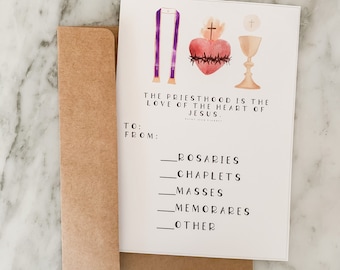 THE PRIESTHOOD IS THE
LOVE OF THE HEART OF
JESUS.
TO:
FROM:
__ROSARIES
__CHAPLETS
__MASSES
__MEMORARES
__OTHER